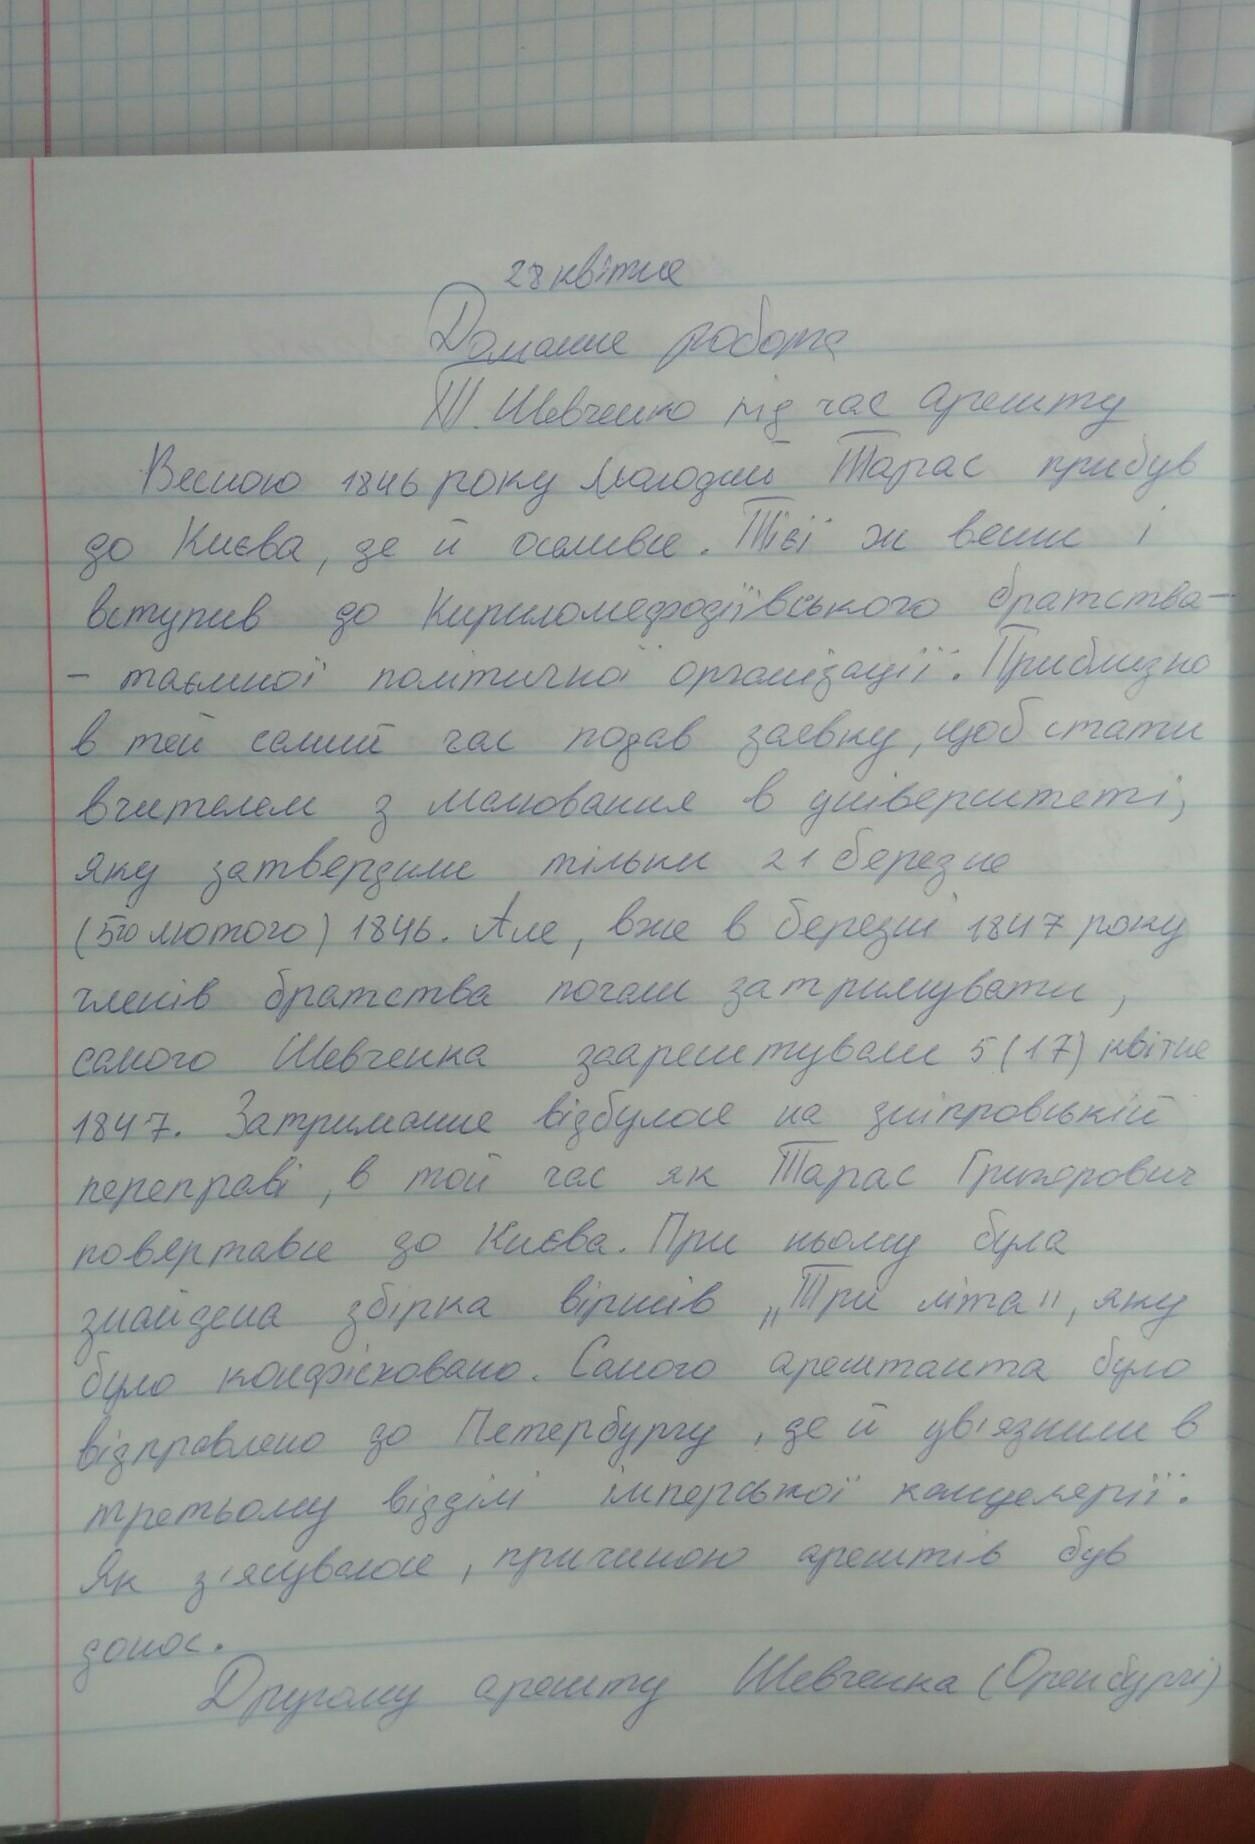 28 квітня
Домашнє робота
Т. Шевченко під час арешту
Весною 1846 року молодий Тарас прибув
до Києва, де й оселився. Тієї ж весни і
вступив до Кириломефодіївського братства-
- таємної політичної організації. Приблизно
в той самий час подав заявку, щоб стати
вчителем з малювання в університеті,
яку затвердили тільки 21 березня
(5го лютого) 1846. Але, вже в березні 1847 року
членів братства почали затримувати,
самого Шевченка заарештували 5 (17) квітня
1847. Затримання відбулося на дніпровській
переправі, в той час як Тарас Григорович
повертався до Києва. При ньому була
знайдена збірка віршів „Три літа", яку
було конфісковано. Самого арештанта було
відправлено до Петербургу, де й ув'язнили в
третьому відділі імперської канцелярії.
Як з'ясувалося, причиною арештів був
донос.
Другому арешту Шевченка (Оренбургі)